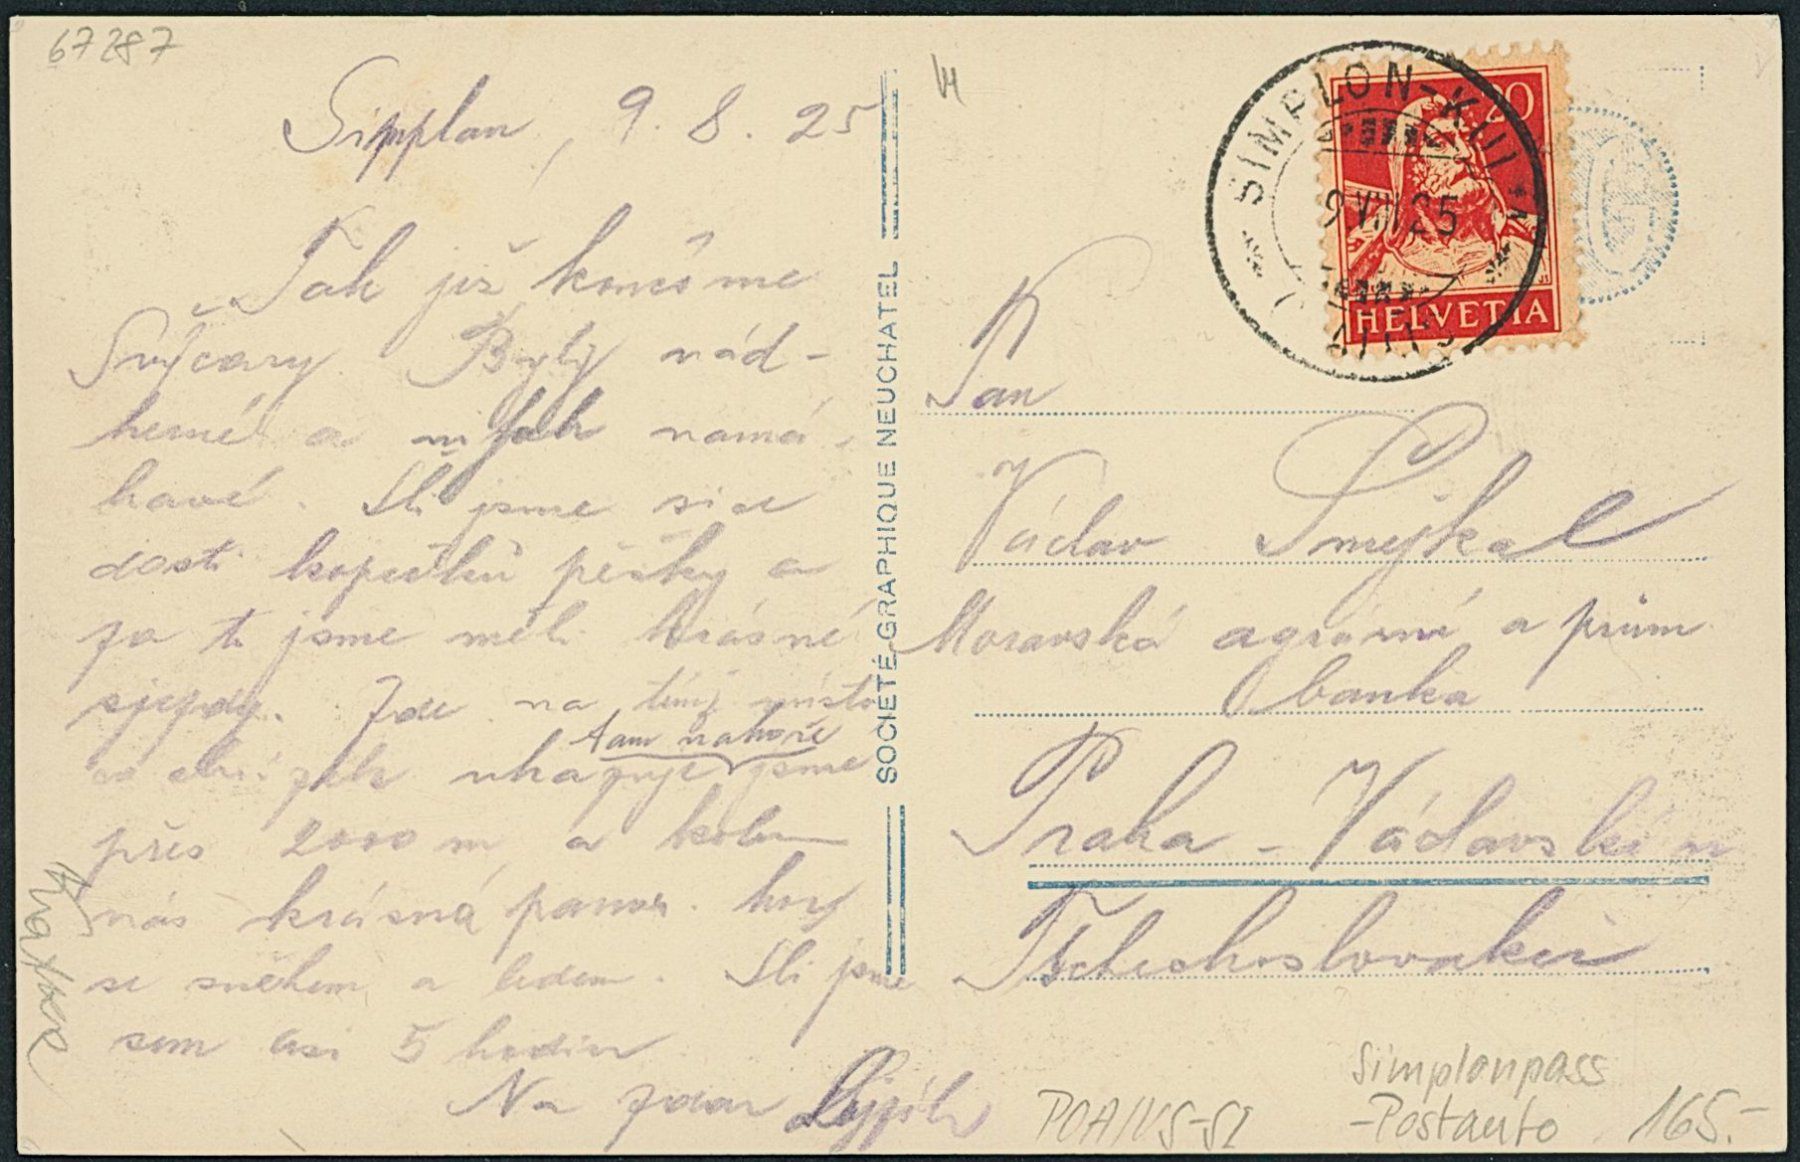 67287
Simplon, 9. 8. 25
Tak již končíme
Švýcary. Byly nád-
herné a však namá-
havé. Šli jsme sice
dosti kopečků pěšky a
za to jsme měli krásné
sjezdy. Zde na místo
tam nahoře
ukazuje jsme
přes 2000 m, a kolem
nás krásná panor. hory
se sněhem a ledem. Šli jsme
sem asi 5 hodin
Na zdar
SOCIÉTÉ GRAPHIQUE NEUCHATEL
SIMPLON-KULM
9.VIII.25
20
HELVETIA
Pan
Václav Smejkal
Moravská agrární a prům
banka
Praha - Václavské n
Tschechoslovakei
Simplonpass
-Postauto 165.-
POA/VS-SI